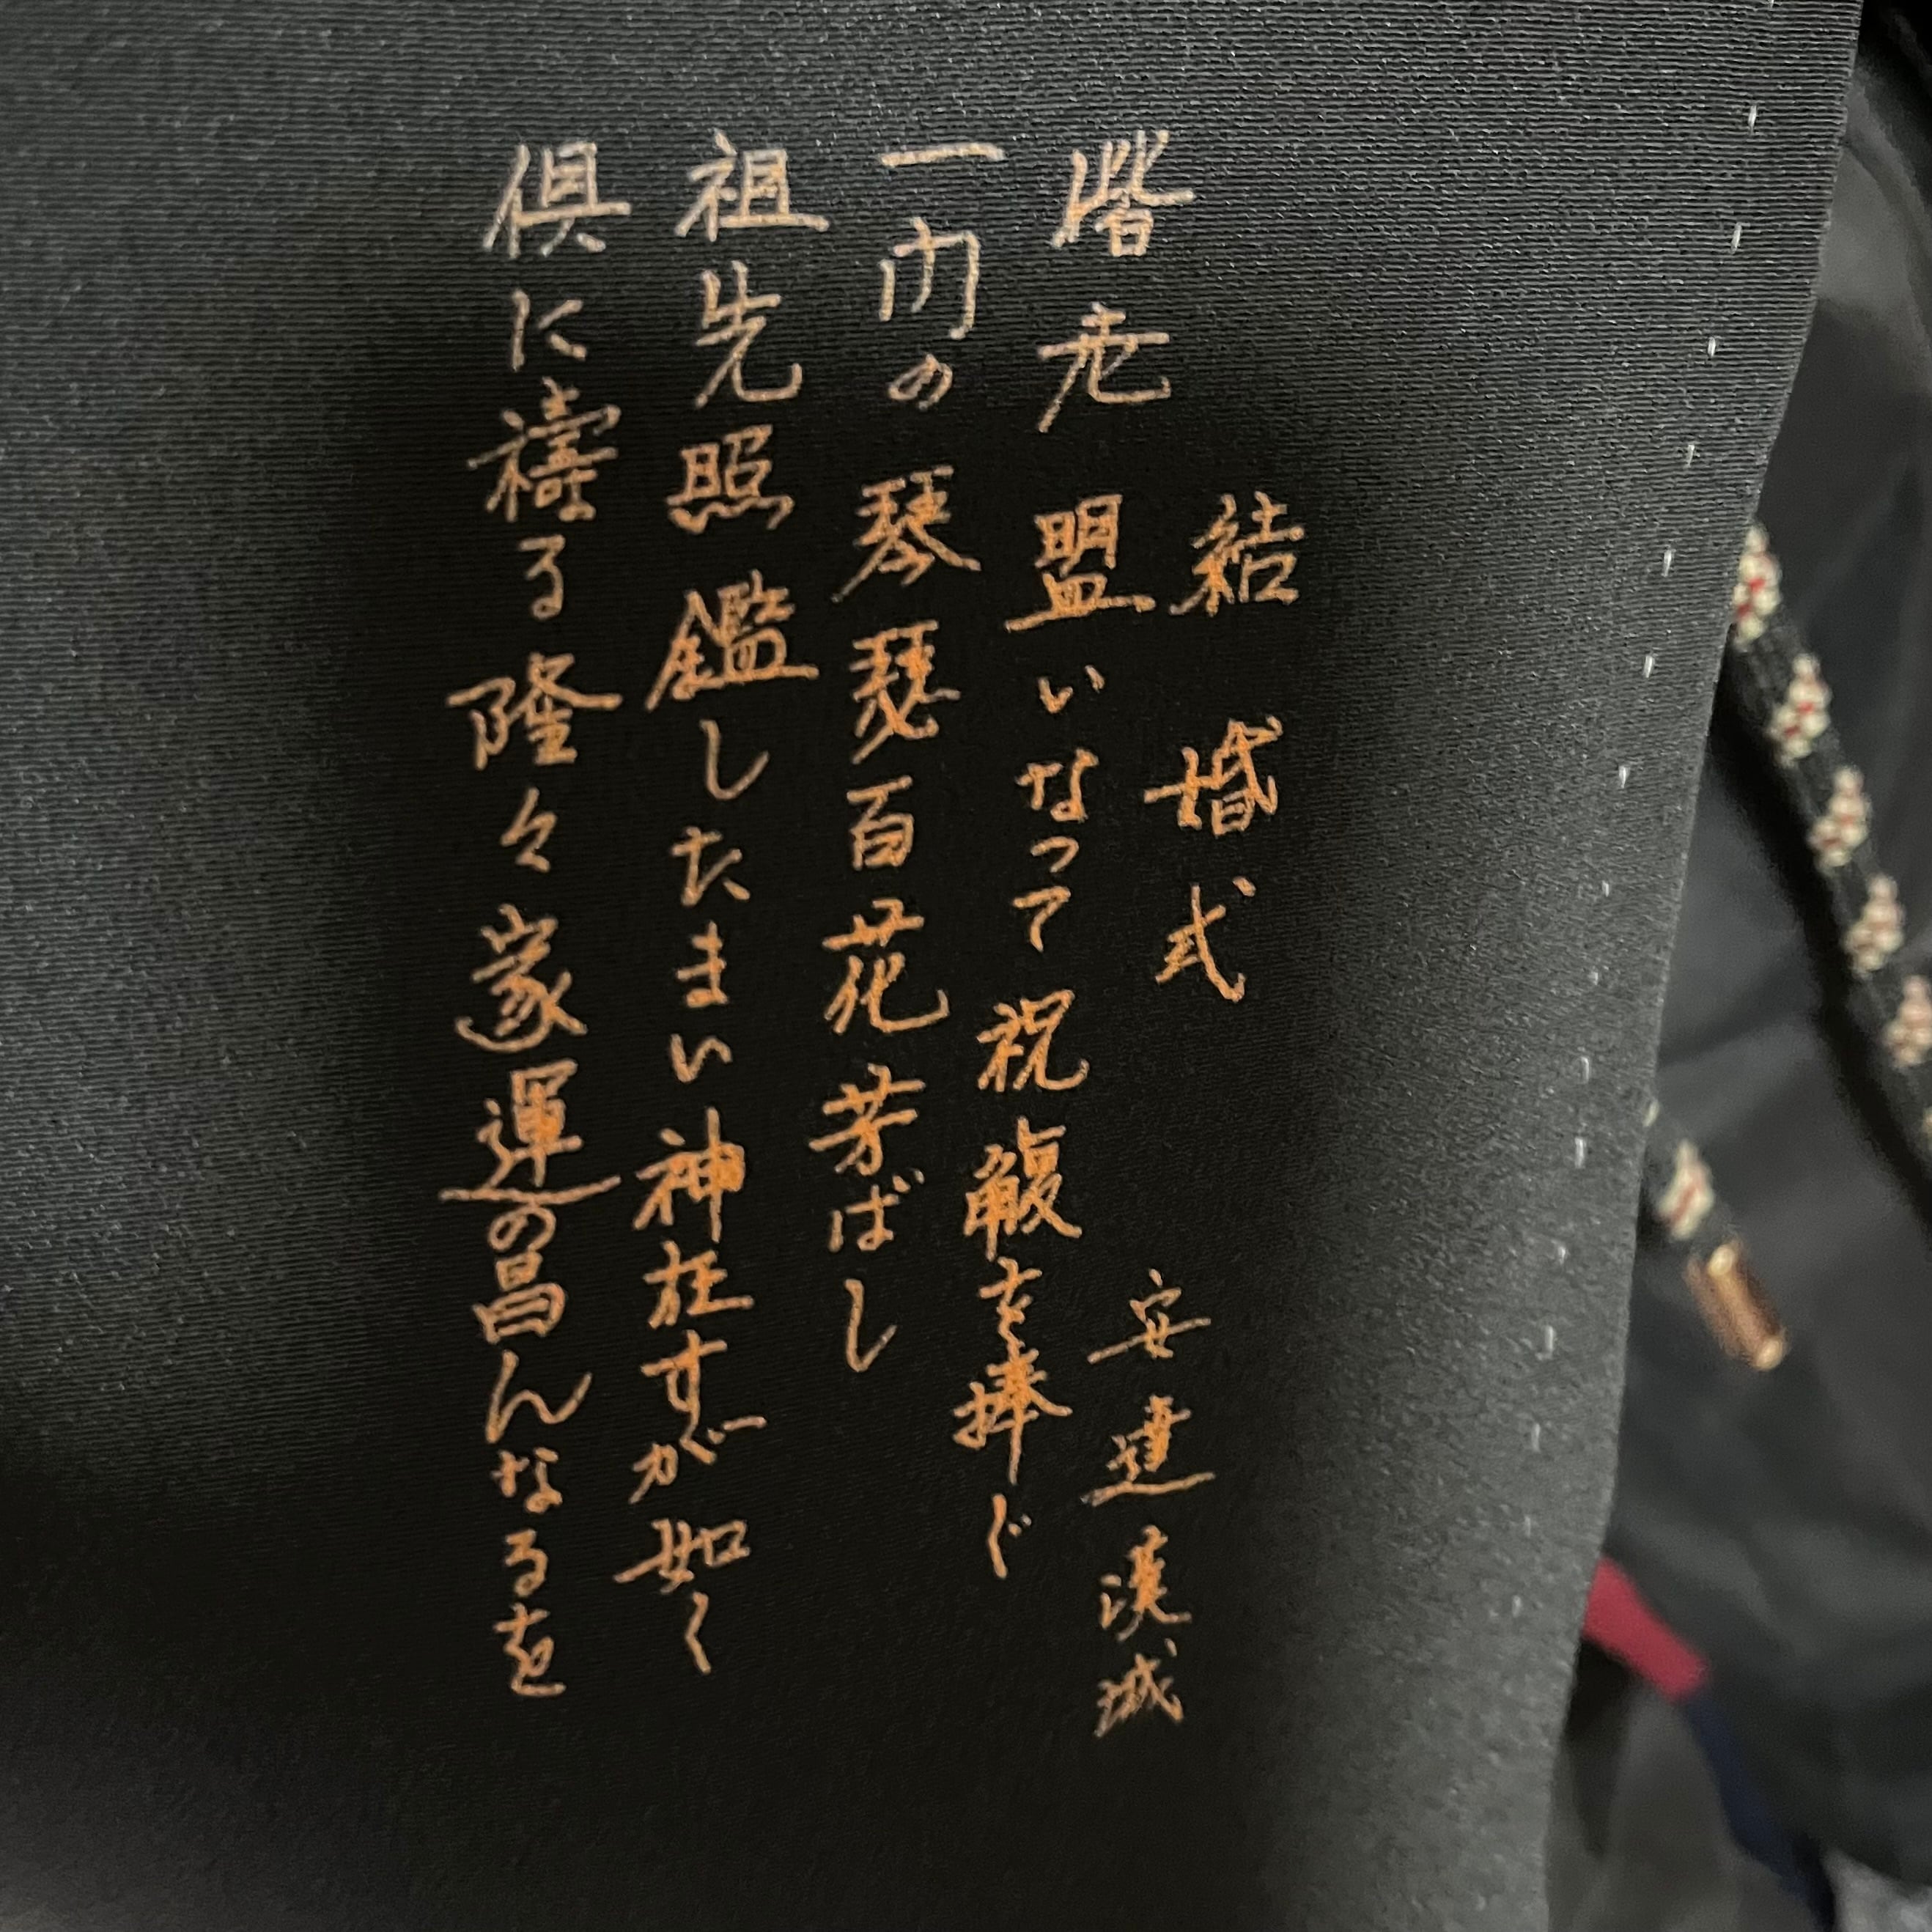 結婚式 安達漢城
偕老盟いなって祝觴を捧ぐ
一門の琴瑟百花芳ばし
祖先照鑑したまい神在すが如く
倶に禱る隆々家運の昌んなるを